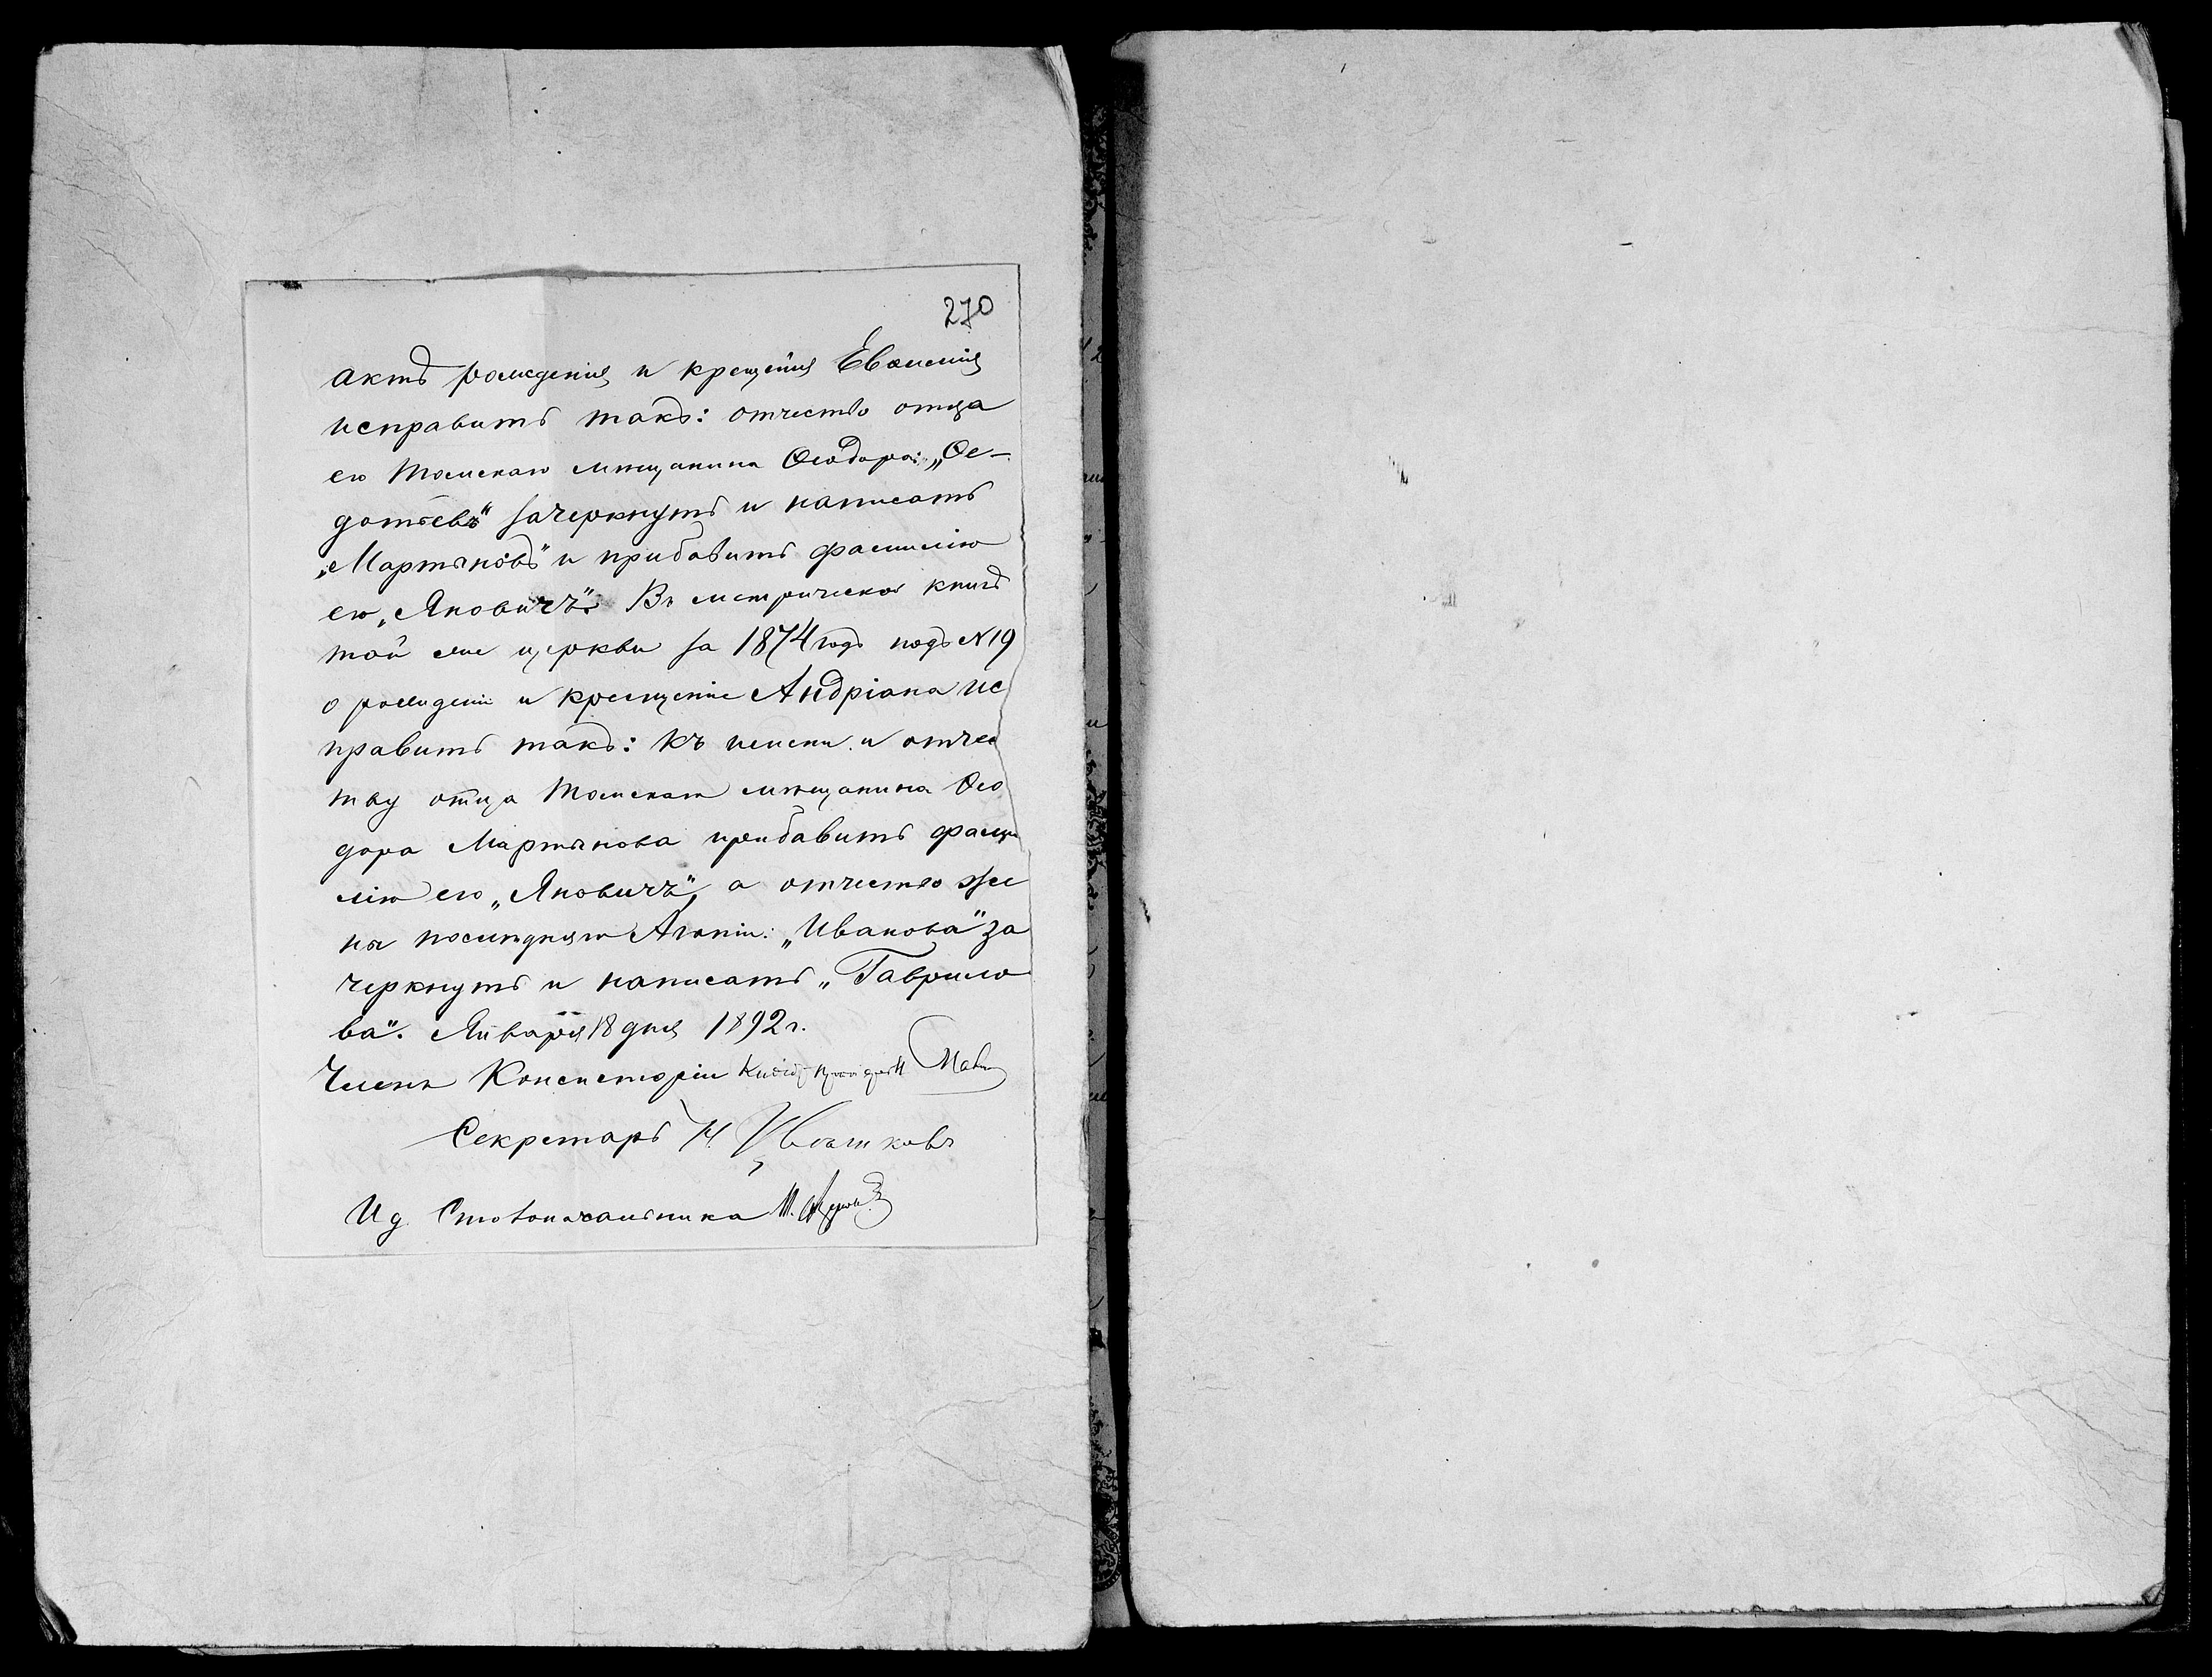 270
актъ рожденія и крещенія Евѳимія
исправить такъ: отчество отца
его Томскаго мѣщанина Ѳеодора: „Ѳе-
дотовъ" зачеркнуть и написать
„Мартыновъ" и прибавить фамилію
его „Яновичъ". Въ метрической книгѣ
той же церкви за 1874 годъ подъ №19
о рожденіи и крещеніе Андріана ис
править такъ: къ имени и отчес
тву отца Томскаго мѣщанина Ѳео
дора Мартынова прибавить фами
лію его „Яновичъ", а отчество же
ны послѣдняго Агапіи: „Иванова" за
черкнуть и написать „Гаврило
ва". Января 18 дня 1892 г.
Членъ Консисторіи
Секретарь
И д. Столоначальника